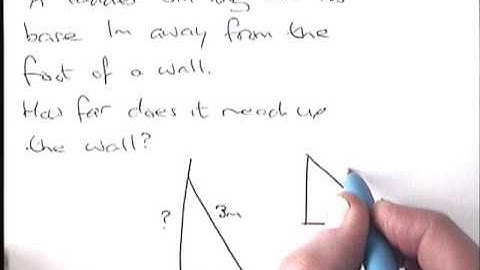 A ladder 3m long has its
base 1m away from the
foot of a wall.
How far does it reach up
the wall?
? 3m